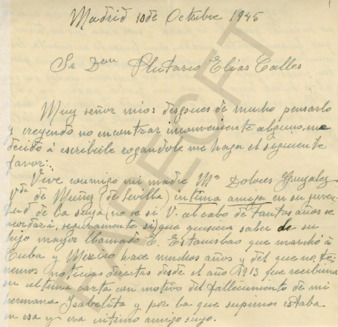 Madrid 10 de Octubre 1945
Sr Don Plutarco Elias Calles
Muy señor mio: despues de mucho pensarlo
y creyendo no encontrar inconveniente alguno, me
decido á escribirle rogandole me haga el siguiente
favor:
Vive conmigo mi madre Mª Dolores Gonzalez
Vda de Muñoz (de Sevilla) intima amiga en su juven
tud de la suya (no se si V. al cabo de tantos años se
acordará), seguramente quisiera saber de su
hijo mayor llamado E. Estanislao que marchó á
Cuba y Mexico hace muchos años y del que no te
nemos noticias directas desde el año 1913 que recibimos
su ultima carta con motivo del fallecimiento de mi
hermana Isabelita y por la que supimos estaba
en esa y era intimo amigo suyo.